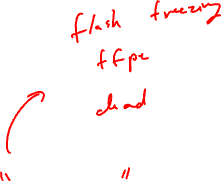 flash freezing
ffpe
dead
" "